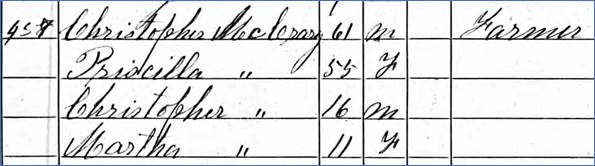 Christopher McCrary 61 m Farmer
Priscilla " 55 F
Christopher " 16 m
Martha " 11 F